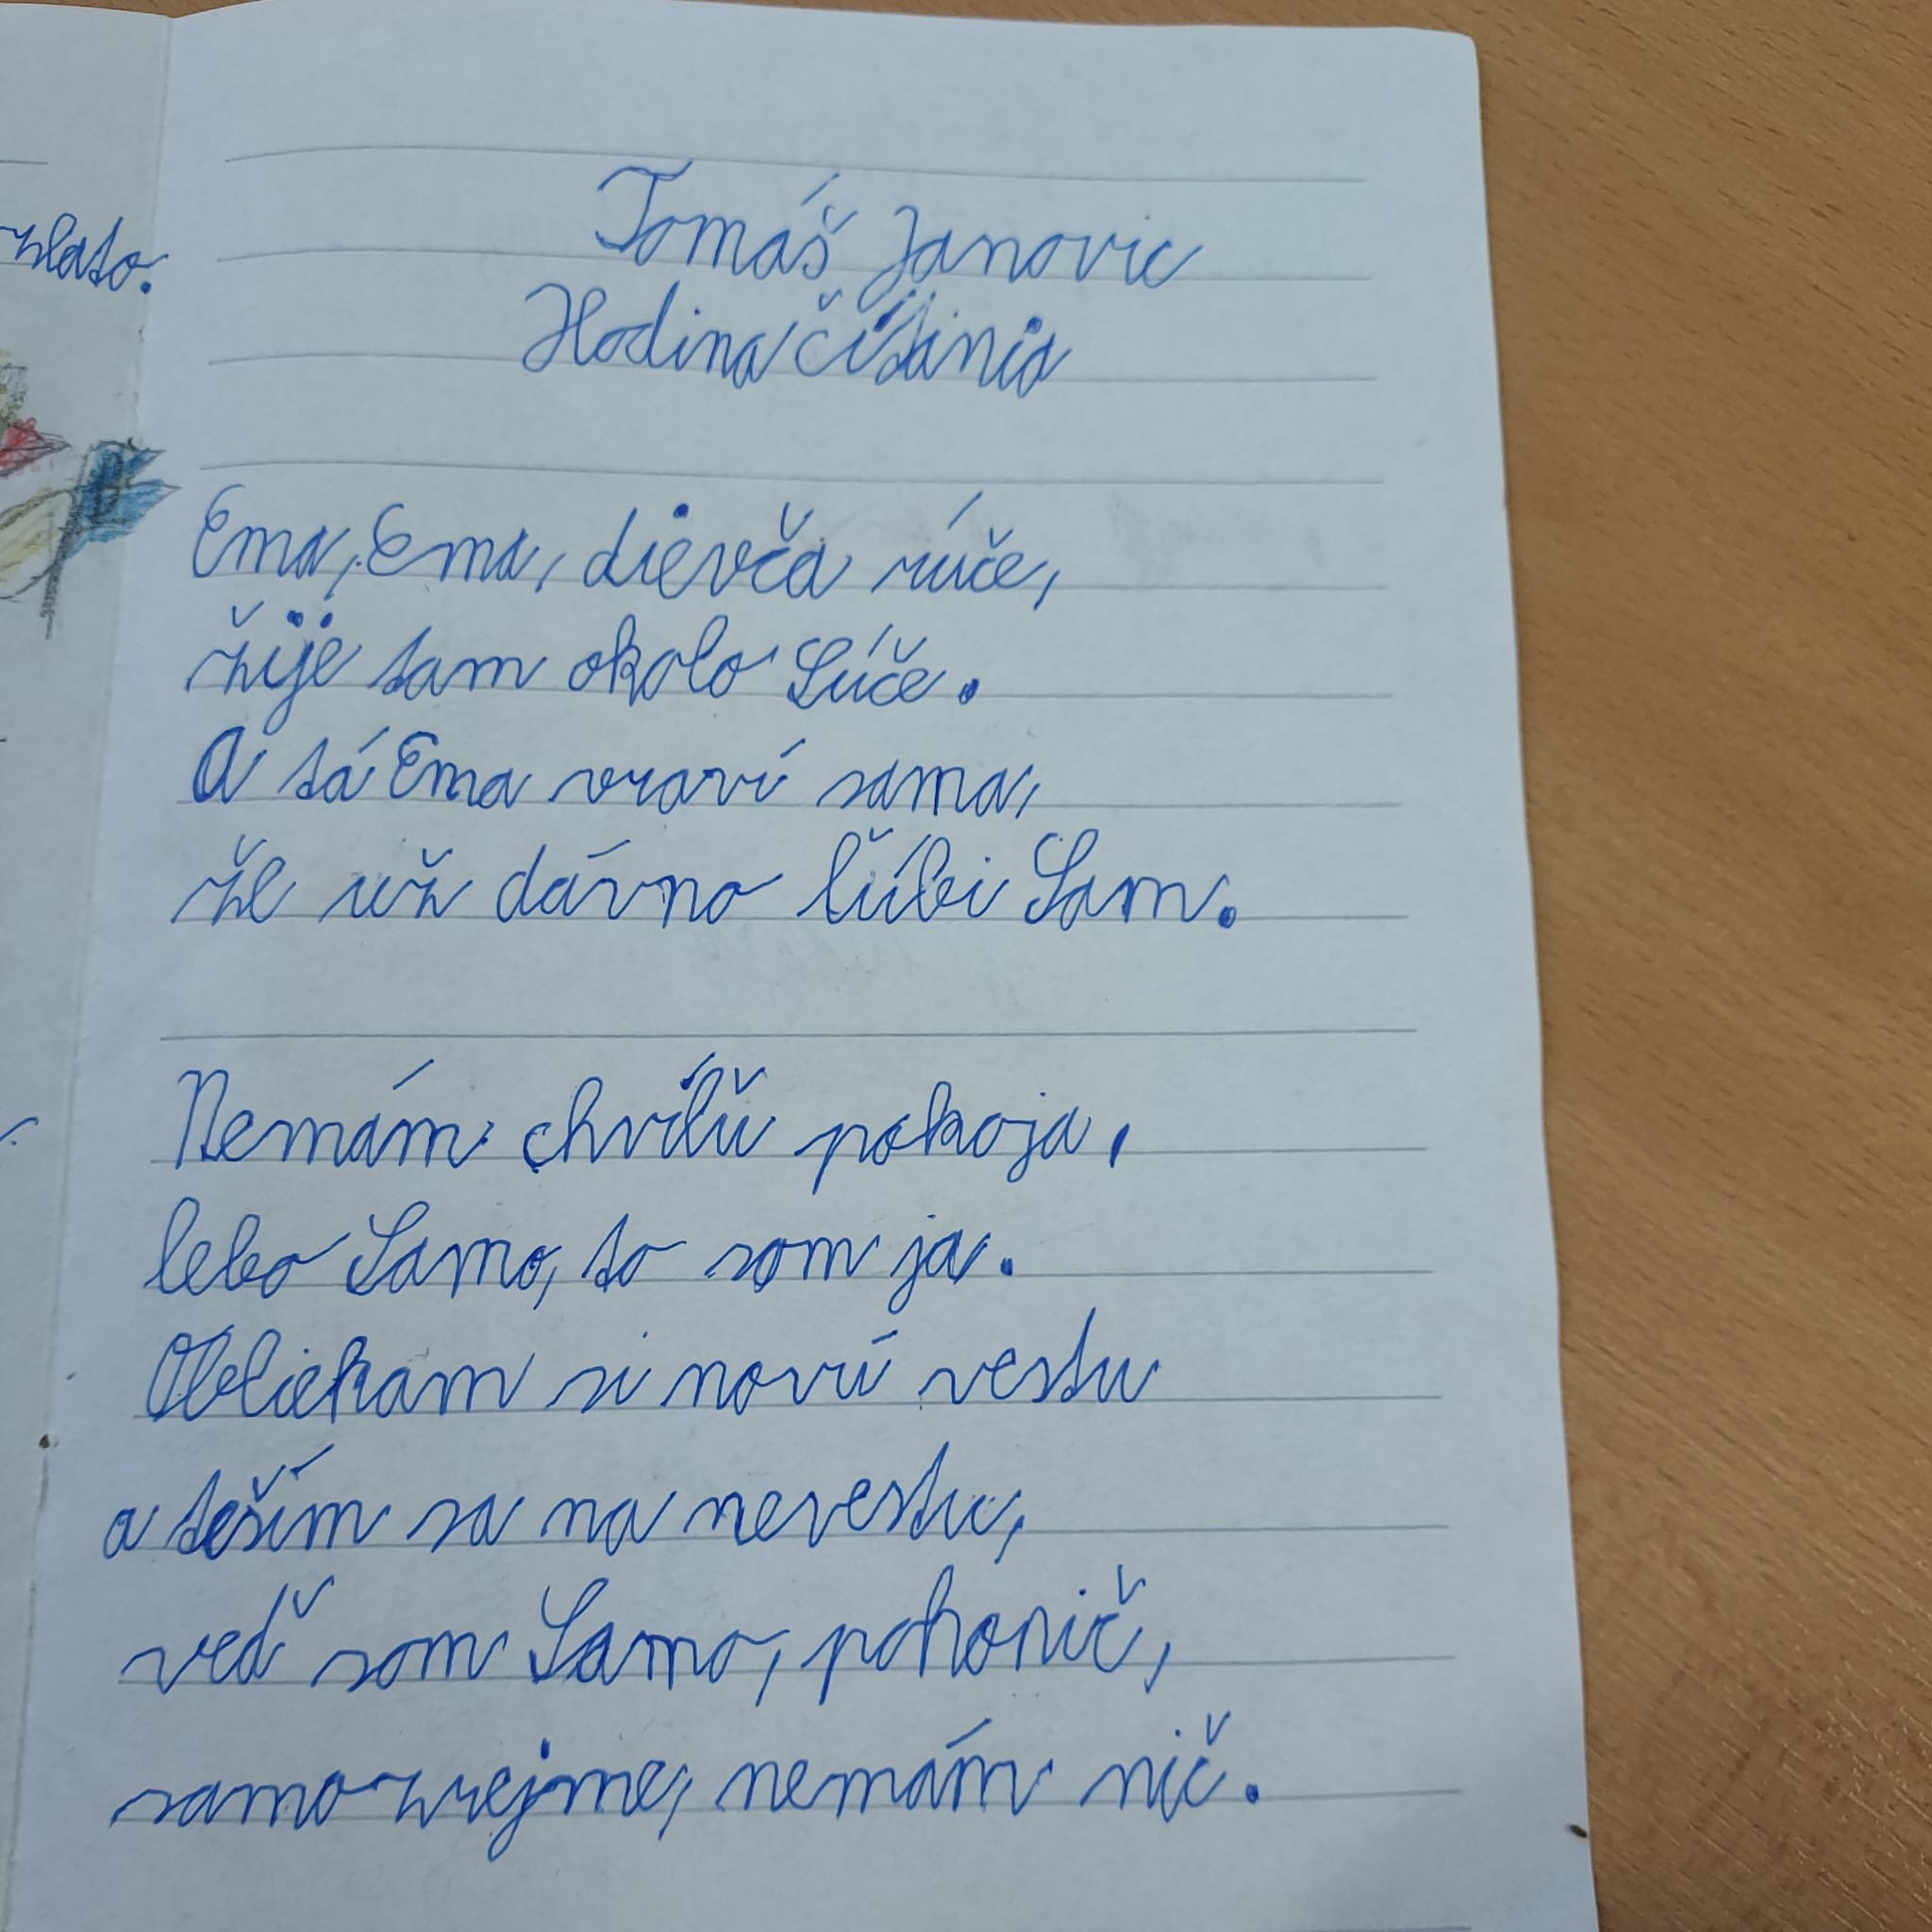 zlato.
Tomáš Janovic
Hodina čítania
Ema, Ema, dievča rúče,
žije tam okolo Súče.
A tá Ema vraví sama,
že už dávno ľúbi Sam.
Nemám chvíľu pokoja,
lebo Samo, to som ja.
Obliekam si novú vestu
a teším sa na nevestu,
veď som Samo, pohonič,
samozrejme, nemám nič.